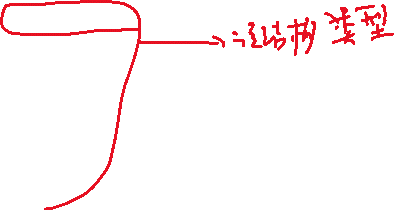 结构类型